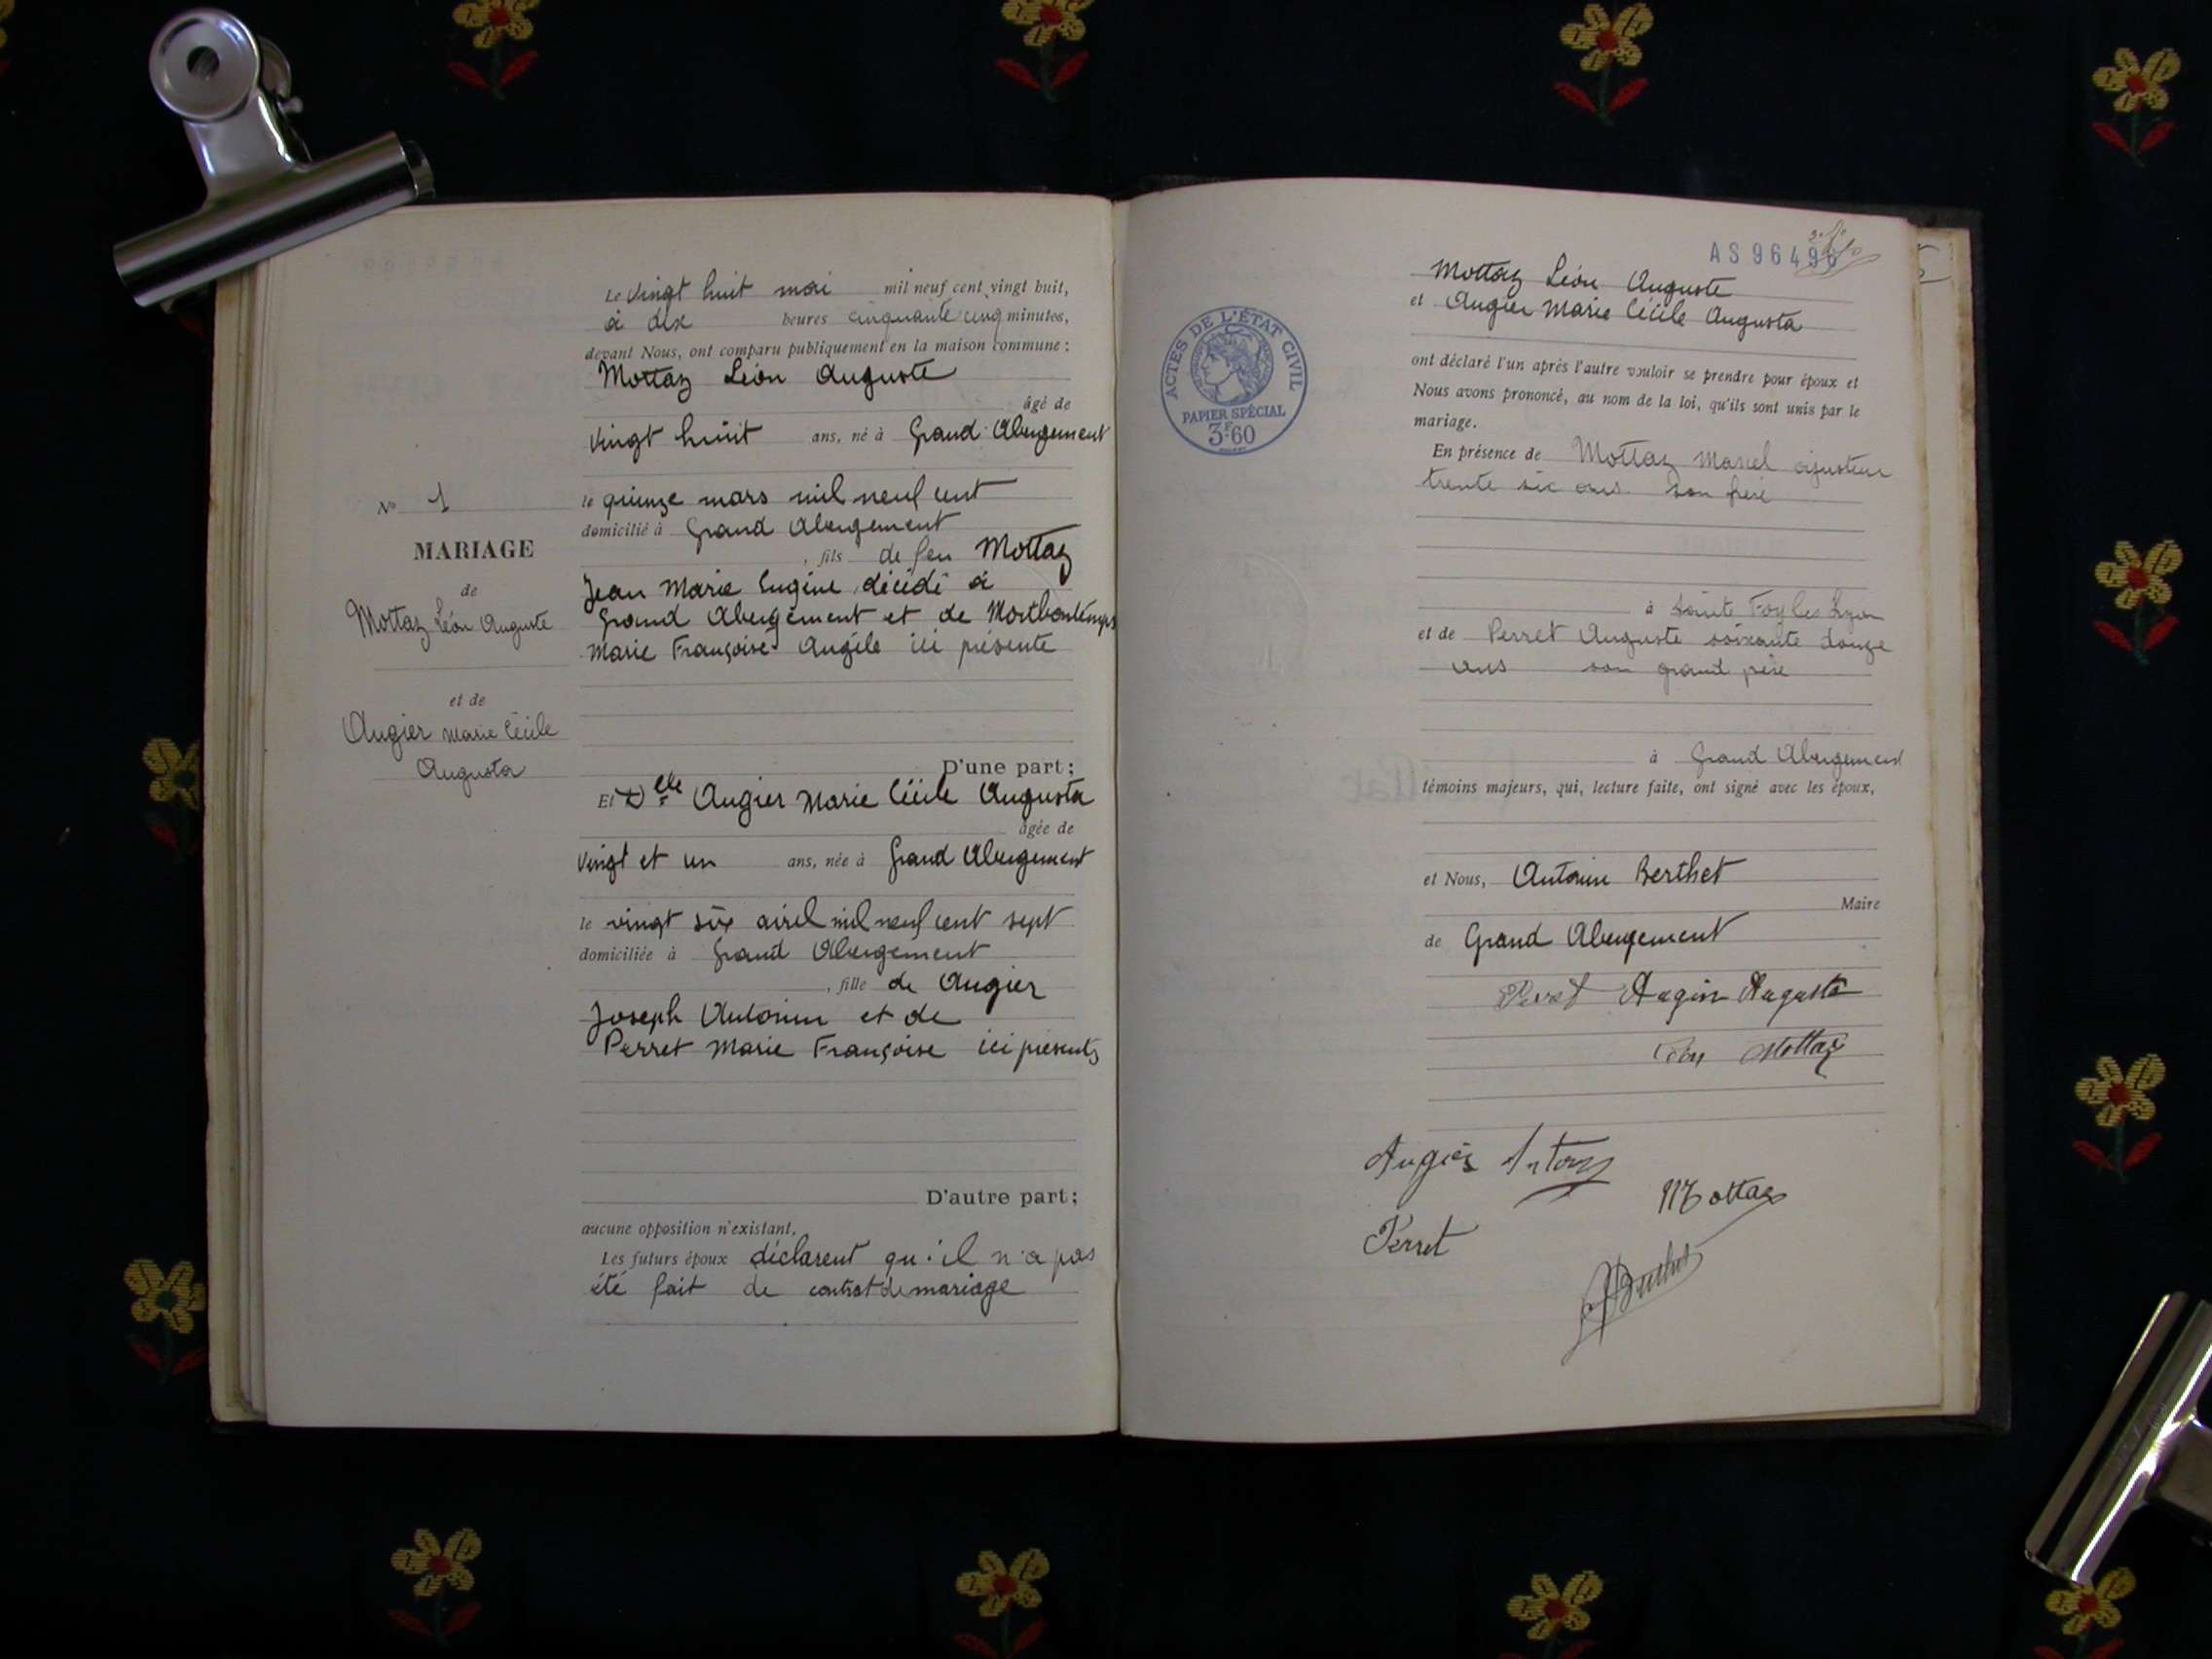 Le vingt huit mai mil neuf cent vingt huit,
à dix heures cinquante cinq minutes,
devant Nous, ont comparu publiquement en la maison commune :
Mottaz Léon Auguste
âgé de
vingt huit ans, né à Grand Abergement
le quinze mars mil neuf cent
domicilié à Grand Abergement
, fils de feu Mottaz
Jean Marie Eugène décédé à
Grand Abergement et de Montbontemps
Marie Françoise Angèle ici présente
D'une part ;
Et Delle Augier Marie Cécile Augusta
âgée de
vingt et un ans, née à Grand Abergement
le vingt six avril mil neuf cent sept
domiciliée à Grand Abergement
, fille de Augier
Joseph Antonin et de
Perret Marie Françoise ici présents
D'autre part ;
aucune opposition n'existant,
Les futurs époux déclarent qu'il n'a pas
été fait de contrat de mariage
No 1
MARIAGE
de
Mottaz Léon Auguste
et de
Augier Marie Cécile
Augusta
AS 96496
ACTES DE L'ÉTAT CIVIL
PAPIER SPÉCIAL
3F.60
Mottaz Léon Auguste
et Augier Marie Cécile Augusta
ont déclaré l'un après l'autre vouloir se prendre pour époux et
Nous avons prononcé, au nom de la loi, qu'ils sont unis par le
mariage.
En présence de Mottaz Marcel ajusteur
trente six ans son frère
à Sainte Foy les Lyon
et de Perret Auguste soixante douze
ans son grand père
à Grand Abergement
témoins majeurs, qui, lecture faite, ont signé avec les époux,
et Nous, Antonin Berthet
Maire
de Grand Abergement
Perret Augier Augusta
Léon Mottaz
Augier Antonin
Mottaz
Perret
Berthet